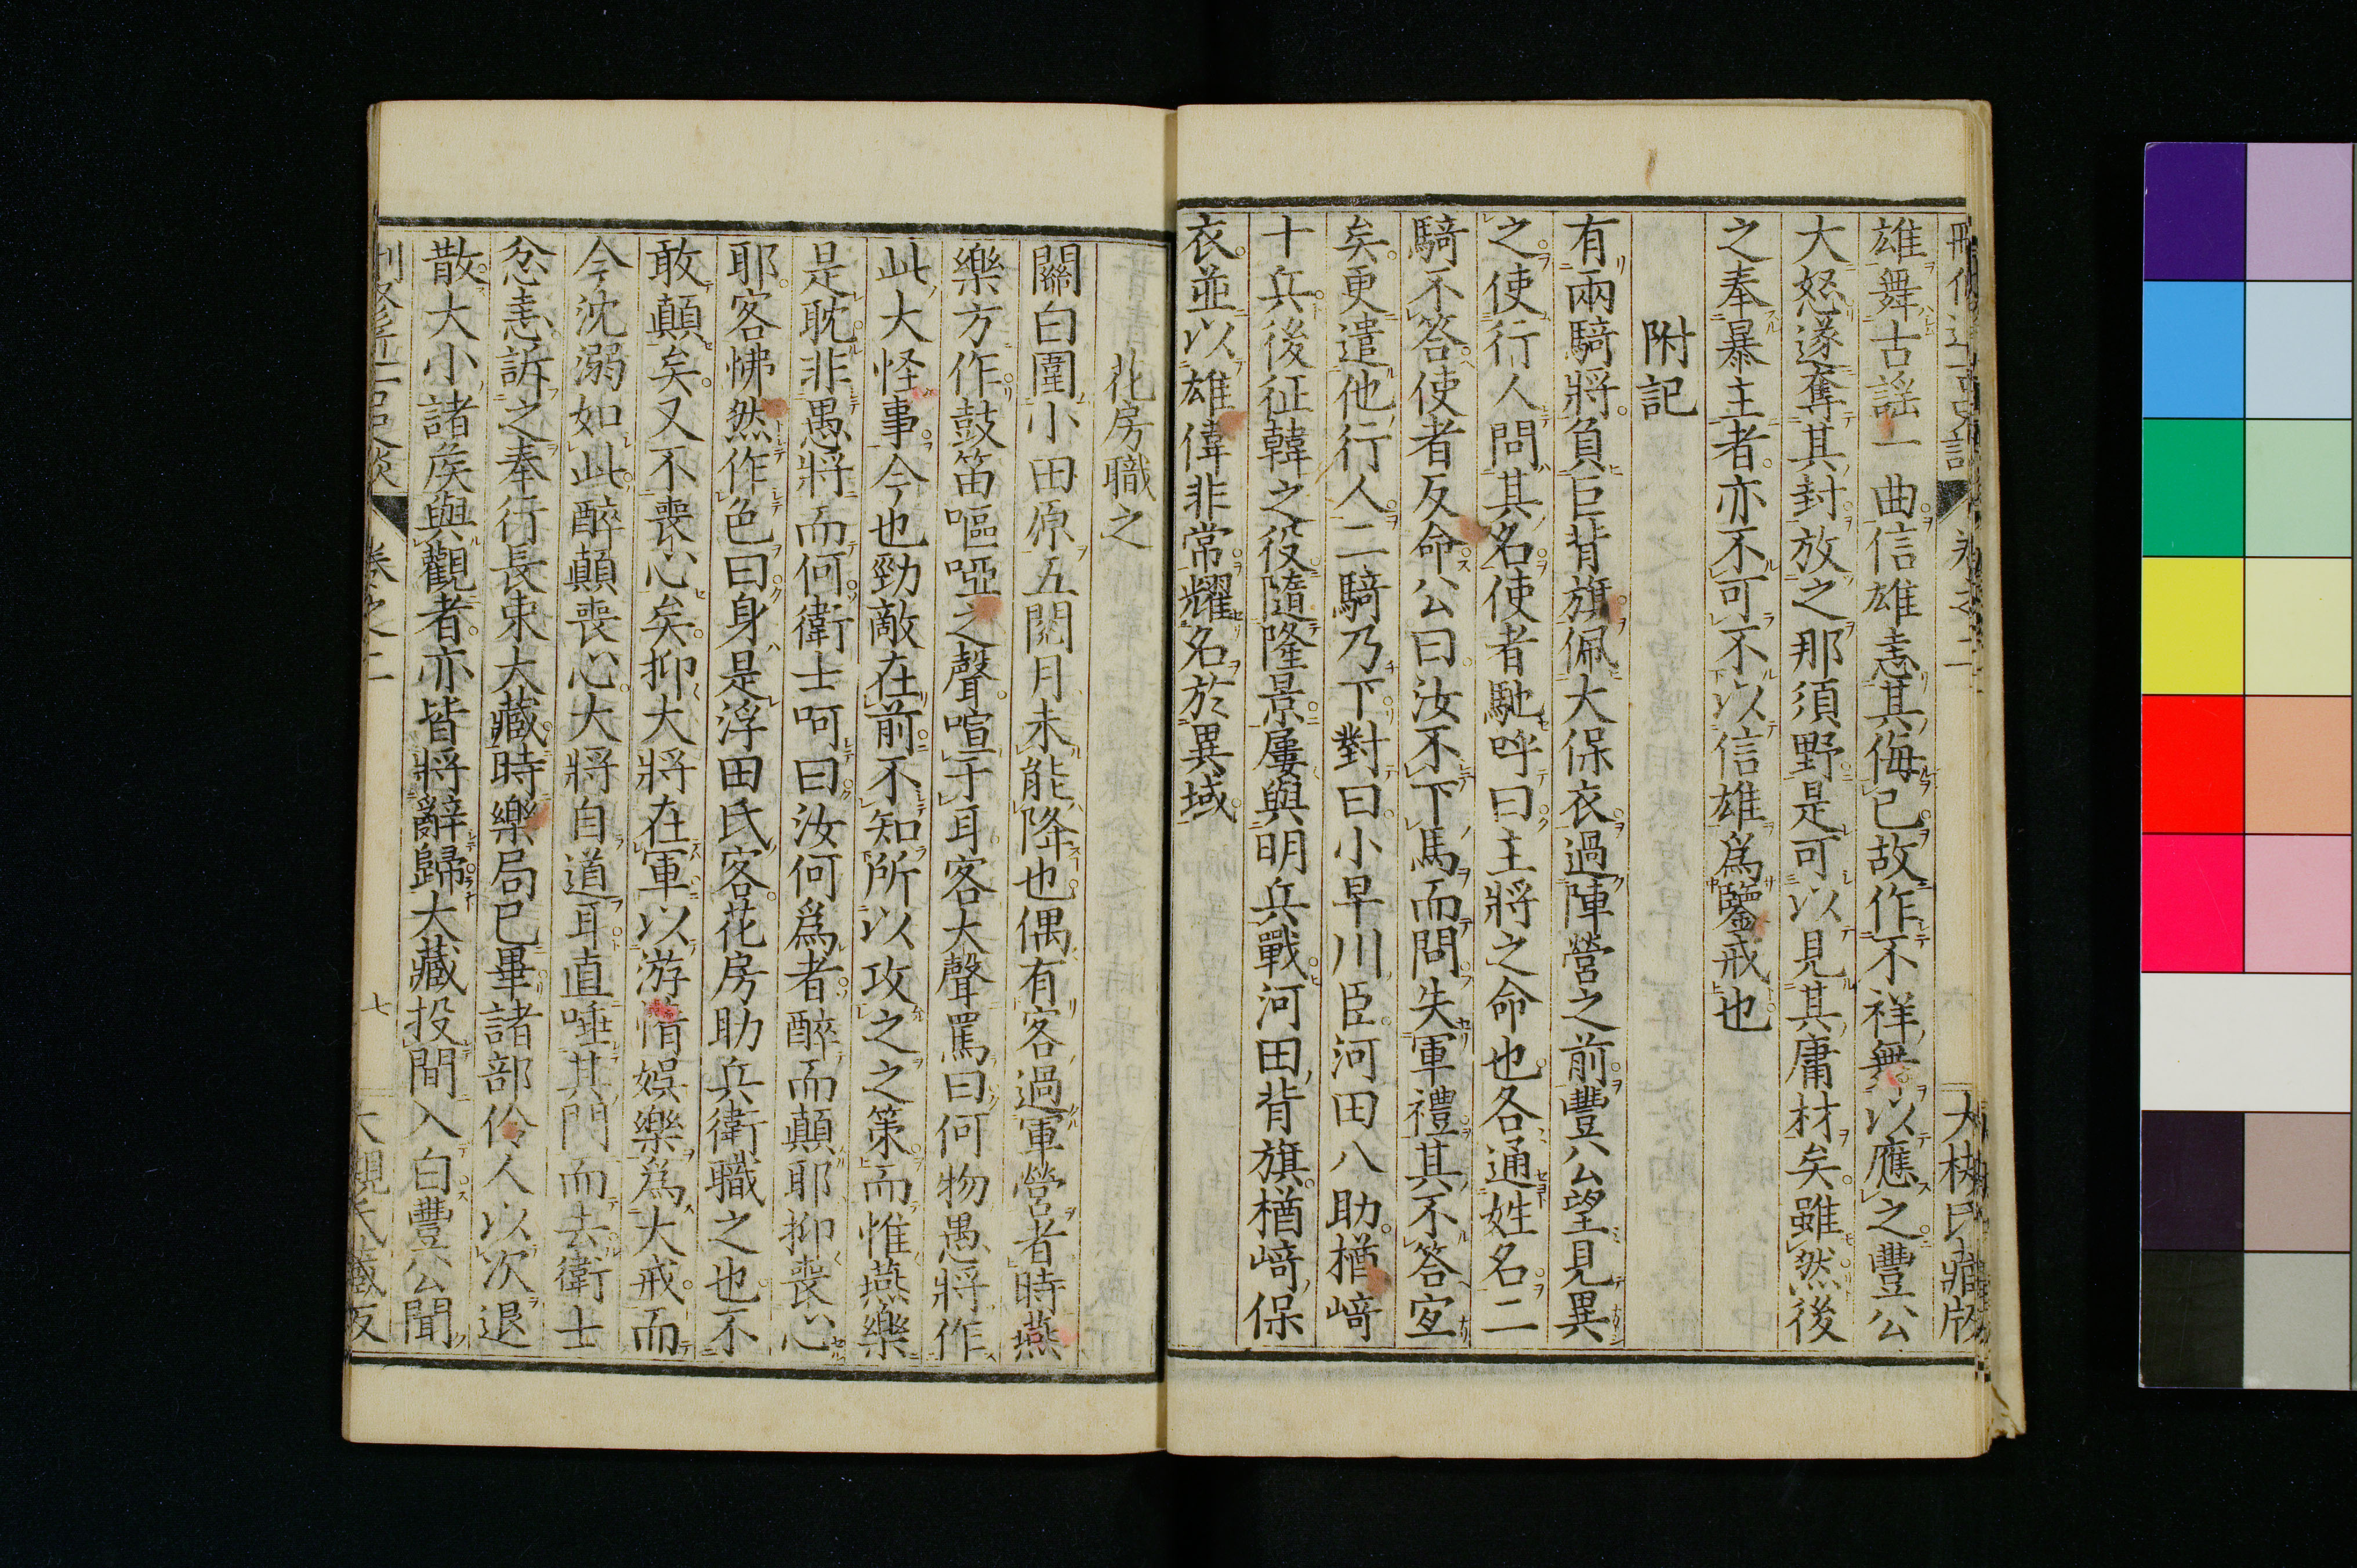 雄舞古謡一曲信雄恚其侮已故作不祥無以應之豐公
大怒遂奪其封放之那須野是可以見其庸材矣雖然後
之奉暴主者亦不可不以信雄爲鑒戒也
附記
有兩騎將負巨背旗佩大保衣過陣營之前豐公望見異
之使行人問其名使者馳呼曰主將之命也各通姓名二
騎不答使者反命公曰汝不下馬而問失軍禮其不答宜
矣更遣他行人二騎乃下對曰小早川臣河田八助楢﨑
十兵後征韓之役隨隆景屢與明兵戰河田背旗楢﨑保
衣並以雄偉非常耀名於異域
花房職之
關白圍小田原五閱月未能降也偶有客過軍營者時燕
樂方作鼓笛嘔啞之聲喧于耳客大聲罵曰何物愚將作
此大怪事今也勁敵在前不知所以攻之之策而惟燕樂
是耽非愚將而何衛士呵曰汝何爲者醉而顛耶抑喪心
耶客怫然作色曰身是浮田氏客花房助兵衛職之也不
敢顛矣又不喪心矣抑大將在軍以游惰娛樂爲大戒而
今沈溺如此醉顛喪心大將自道耳直唾其門而去衛士
忿恚訴之奉行長束大藏時樂局已畢諸部伶人以次退
散大小諸侯與觀者亦皆將辭歸大藏投間入白豐公聞
卷之二 七